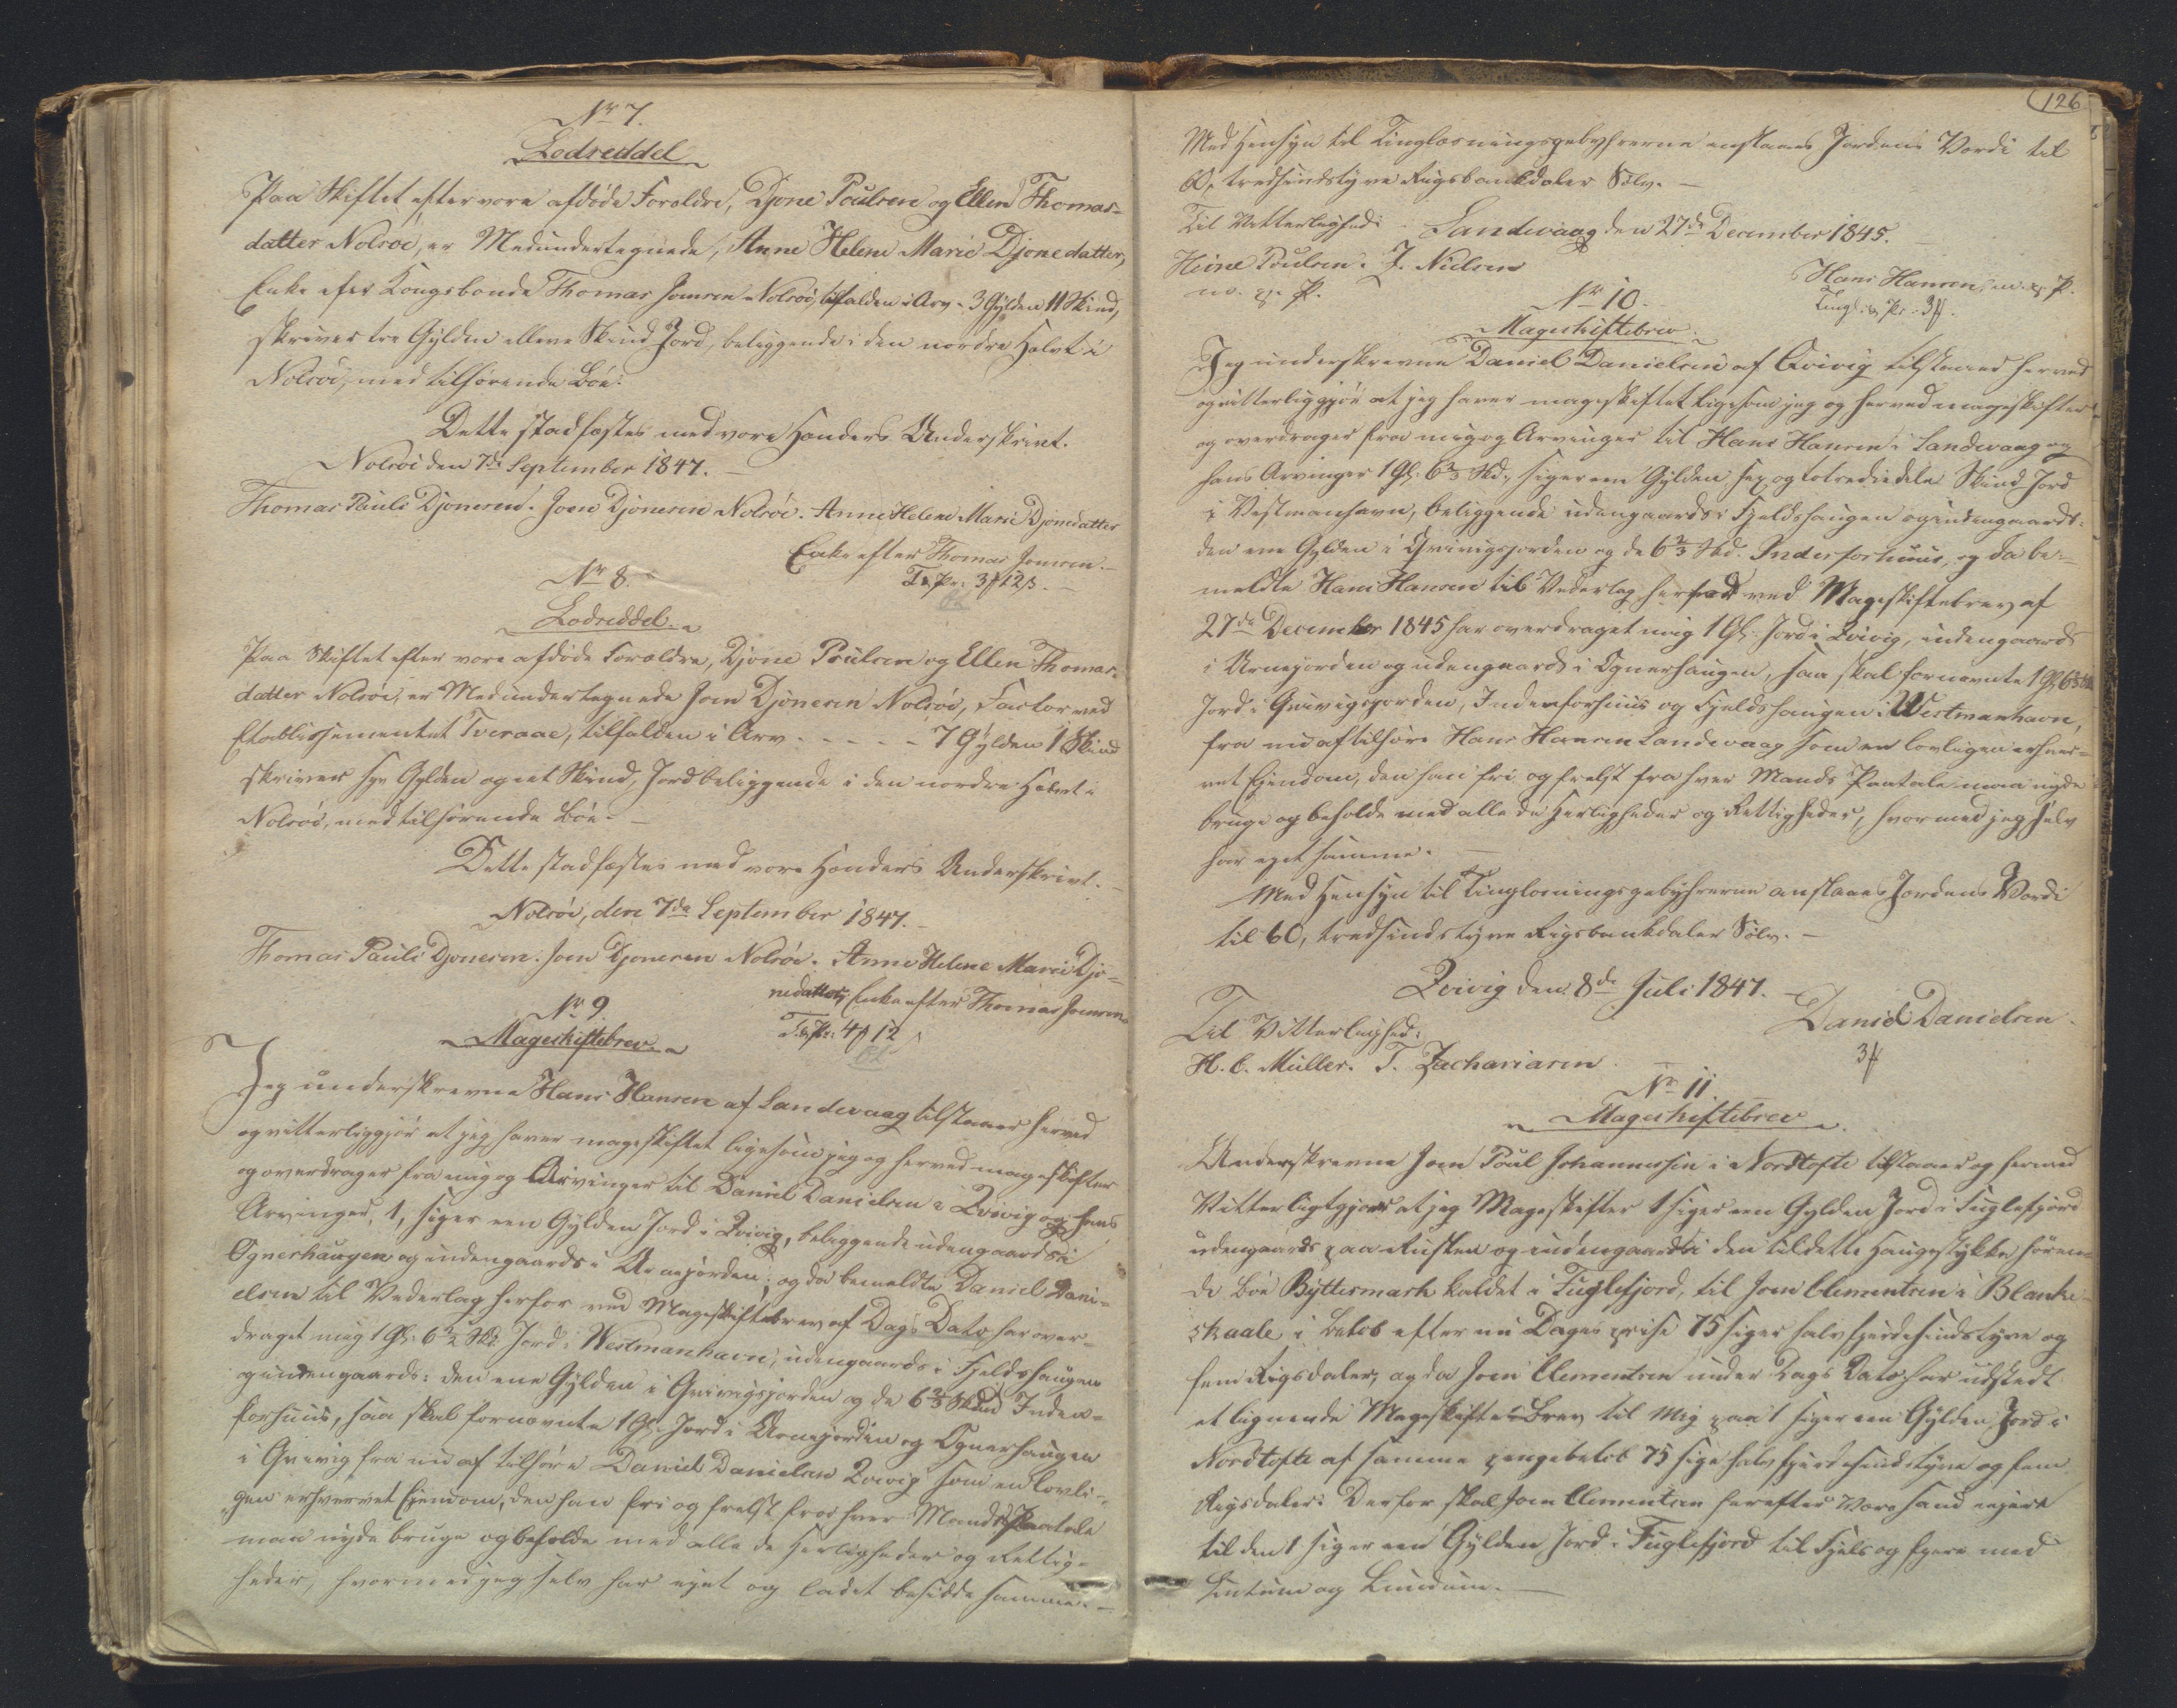 No 7.
Lodseddel
Paa Skiftet efter vore afdöde Forældre, Djone Poulsen og Ellen Thomas-
datter Nolsöe, er Medundertegnede, Anne Helene Marie Djonedatter,
Enke efter Kongsbonde Thomas Joensen Nolsöe, tilfalden i Arv - 3 Gylden 11 Skind,
skriver tre Gylden elleve Skind Jord, beliggende i den nordre Halvt i
Nolsöe, med tilhörende Böe.
Dette stadfæstes med vore Hænders Underskrivt.
Nolsöe den 7de September 1847.
Thomas Pauli Djonesen. Joen Djonesen Nolsöe. Anne Helene Marie Djonedatter
Enke efter Thomas Joensen.
No 8.
Lodseddel.
Paa Skiftet efter vore afdöde Forældre, Djone Poulsen og Ellen Thomas-
datter Nolsöe, er Medundertegnede Joen Djonesen Nolsöe, Factor ved
Etablissementet Tveraae, tilfalden i Arv - - - - - 7 Gylden 1 Skind
skriver syv Gylden og et Skind, Jord beliggende i den nordre Halvt i
Nolsöe, med tilhörende Böe. -
Dette stadfæstes med vore Hænders Underskrivt. -
Nolsöe, den 7de September 1847. -
Thomas Pauli Djonesen. Joen Djonesen Nolsöe. Anne Helene Marie Djo-
nedatter, Enke efter Thomas Joensen
No 9.
Mageskiftebrev.
Jeg underskrevne Hans Hansen af Sandevaag tilstaaer herved
og vitterliggjör at jeg haver mageskiftet ligesom jeg og herved mageskifter
og overdrager fra mig og Arvinger til Daniel Danielsen i Qvivig og hans
Arvinger, 1, siger een Gylden Jord i Qvivig, beliggende udengaards i
Ognerhaugen og indengaards i Urnejorden; og da bemeldte Daniel Dani-
elsen til Vederlag herfor ved Mageskiftebrev af Dags Dato har over-
draget mig 1 Gl: 6⅔ Skd: Jord i Westmanhavn, udengaards i Fjeldshaugen
og indengaards: den ene Gylden i Qvivigsjorden og de 6⅔ Skind Inden-
forhuus, saa skal fornævnte 1 Gl. Jord i Urnejorden og Ognerhaugen
i Qvivig fra nu af tilhöre Daniel Danielsen Qvivig som en lovli-
gen erhvervet Eiendom, den han fri og frelst fra hver Mands Paatale
maa nyde bruge og beholde med alle de Herligheder og Rettig-
heder, hvormed jeg selv har ejet og ladet besidde samme. -
126
Med Hensyn til Tinglæsningsgebyhrerne anslaaes Jordens Værdi til
60, tredsindstyve Rigsbankdaler Sölv. -
Til Vitterlighed: Sandevaag den 27de December 1845.
Heine Poulsen. J. Nielsen
m. p. P.
Hans Hansen, m. p. P.
No 10.
Mageskiftebrev.
Jeg underskrevne Daniel Danielsen af Qvivig tilstaaer herved
og vitterliggjör at jeg haver mageskiftet ligesom jeg og herved mageskifter
og overdrager fra mig og Arvinger til Hans Hansen i Sandevaag og
hans Arvinger 1 Gl: 6⅔ Skd:, siger een Gylden sex og totrediedele Skind Jord
i Vestmanhavn, beliggende udengaards i Fjeldshaugen og indengaards:
den ene Gylden i Qvivigsjorden og de 6⅔ Skd. Indenforhuus, og da be-
meldte Hans Hansen til Vederlag herfor ved Mageskiftebrev af
27de December 1845 har overdraget mig 1 Gl: Jord i Qvivig, indengaards
i Urnejorden og udengaards i Ognerhaugen, saa skal fornævnte 1 Gl 6⅔ Skd
Jord i Qvivigsjorden, Indenforhuus og Fjeldshaugen i Westmanhavn,
fra nu af tilhöre Hans Hansen Sandevaag som en lovligen erhver-
vet Ejendom, den han fri og frelst fra hver Mands Paatale maa nyde
bruge og beholde med alle de Herligheder og Rettigheder, hvormed jeg selv
har ejet samme. -
Med Hensyn til Tinglæsningsgebyhrerne anslaaes Jordens Værdi
til 60, tredsindstyve Rigsbankdaler Sölv. -
Qvivig den 8de Juli 1847.
Til Vitterlighed:
Daniel Danielsen.
H. C. Müller. T. Zachariasen
No 11.
Mageskiftebrev
Underskrevne Joen Poul Johannessen i Nordtofte tilstaaer og herved
Vitterligtgjör at jeg Mageskifter 1 siger een Gylden Jord i Fuglefjord
udengaards paa Rusten og indengaards i den til dette Haugestykke hören-
de Böe Byttesmark kaldet i Fuglefjord, til Joen Clementsen i Blanke-
skaale i Beløb efter nu Dages prise 75 siger halvfjerdesindstyve og
fem Rigsdaler, og da Joen Clementsen under Dags Dato har udstedt
et lignende Mageskifte-Brev til Mig paa 1 siger een Gylden Jord i
Nordtofte af samme pengebeløb 75 sige halvfjerdesindstyve og fem
Rigsdaler: Derfor skal Joen Clementsen herefter være sand eejere
til den 1 siger een Gylden Jord i Fuglefjord til Fjels og Fjere med
Luttum og Lundum. -